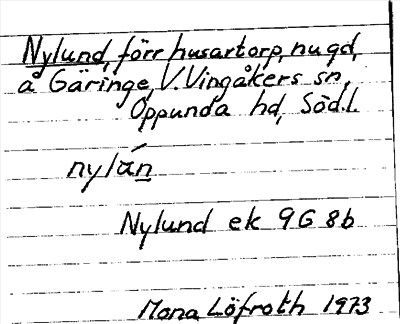 Nylund, förr husartorp, nu gd,
å Gäringe, V. Vingåkers sn,
Oppunda hd, Söd.l.
nylán
Nylund ek 9G 8b
Mona Löfroth 1973